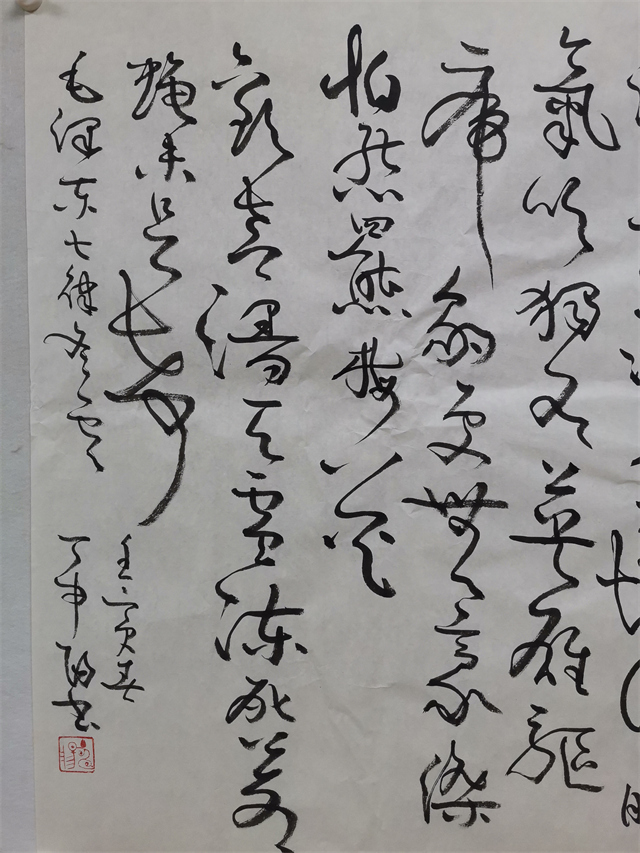 氣吹獨有英雄驅
虎豹更無豪傑
怕熊羆梅花
歡喜漫天雪凍死蒼
蠅未足奇
毛澤东七律冬雲
壬寅春
丁申陽书